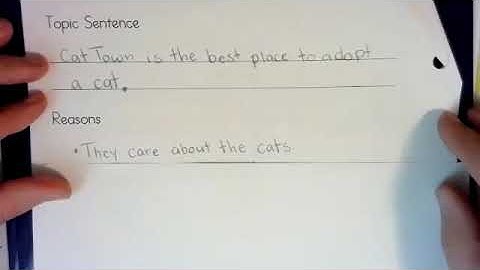 Topic Sentence
Cat Town is the best place to adopt
a cat.
Reasons
• They care about the cats